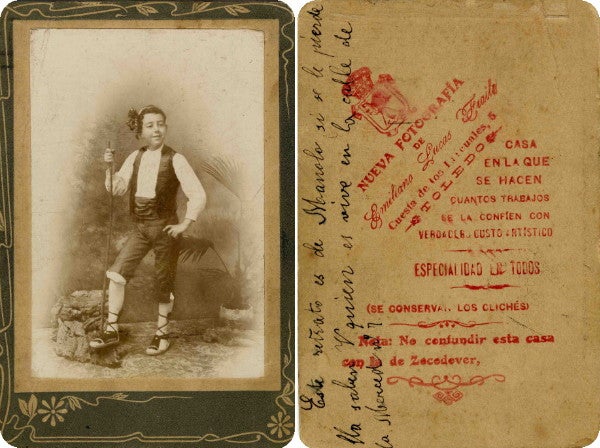 NUEVA FOTOGRAFÍA
DE
Emiliano Lucas Fraile
Cuesta de los 5
TOLEDO
CASA
EN LA QUE
SE HACEN
CUANTOS TRABAJOS
SE LA CONFÍEN CON
VERDADERO GUSTO ARTÍSTICO
ESPECIALIDAD EN TODOS
(SE CONSERVAN LOS CLICHÉS)
Nota: No confundir esta casa
con la de Zocodever,
Este retrato es de Manolo si se le pierde
saben quien es vive en la calle de
la Merced nº 7